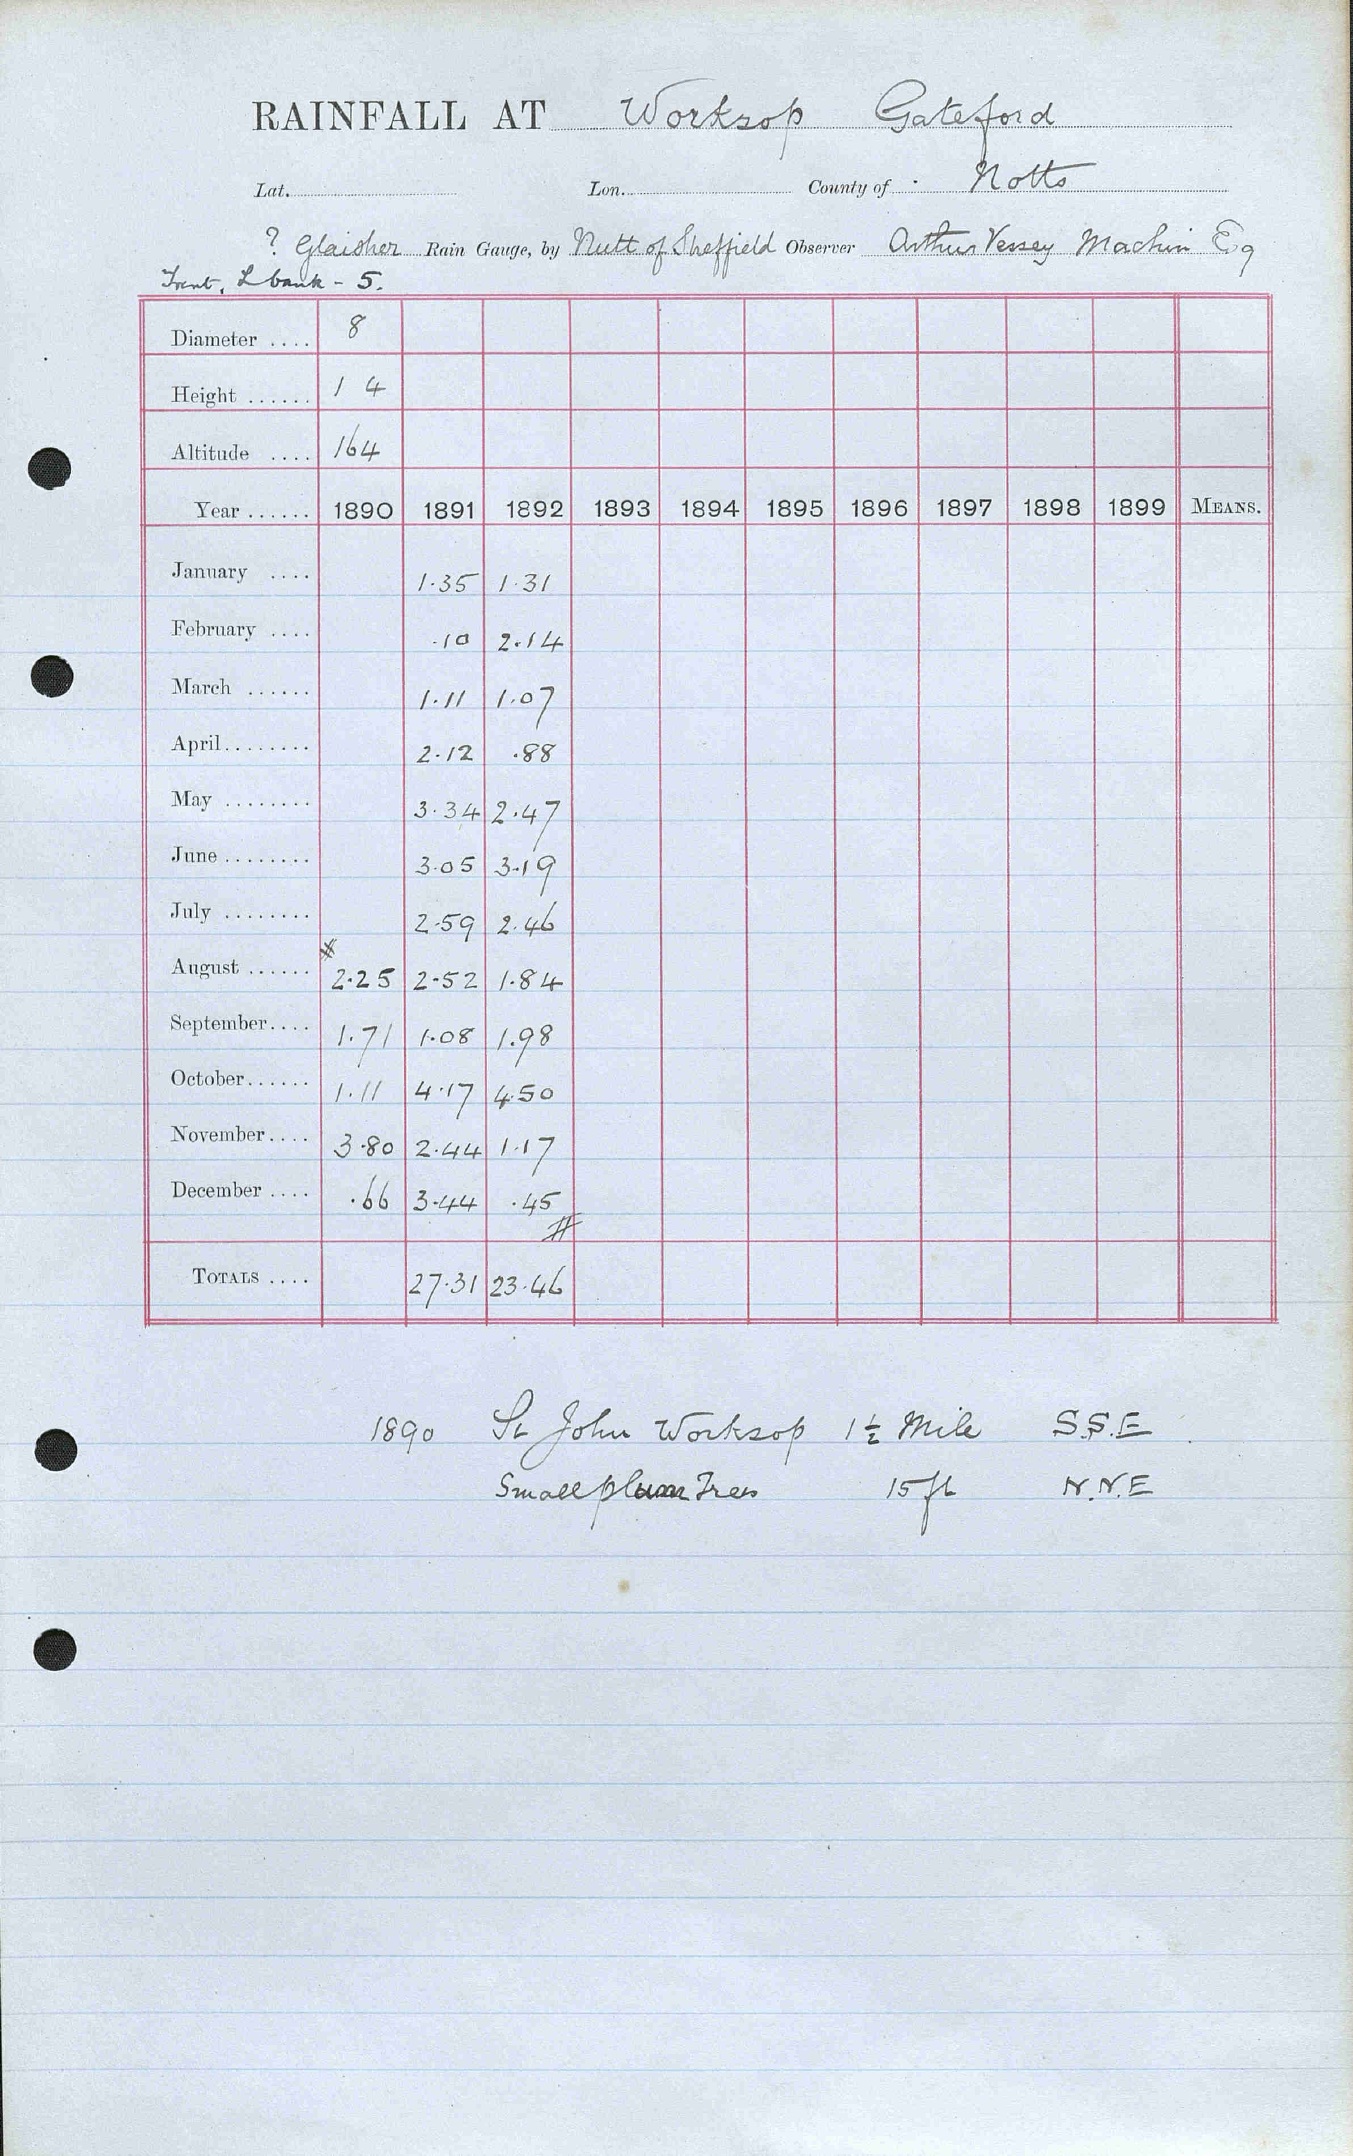 RAINFALL AT Worksop Gateford
Lat. Lon. County of Notts
? Glaisher Rain Gauge, by Nutt of Sheffield Observer Arthur Vessey Machin Esq
Trent, L bank - 5.
Diameter .... 8
Height ...... 1 4
Altitude .... 164
Year ...... 1890 1891 1892 1893 1894 1895 1896 1897 1898 1899 MEANS.
January .... 1.35 1.31
February .... .10 2.14
March ...... 1.11 1.07
April........ 2.12 .88
May ........ 3.34 2.47
June ........ 3.05 3.19
July ........ 2.59 2.46
August ...... # 2.25 2.52 1.84
September.... 1.71 1.08 1.98
October...... 1.11 4.17 4.50
November.... 3.80 2.44 1.17
December .... .66 3.44 .45 #
TOTALS .... 27.31 23.46
1890 St John Worksop 1½ Mile S.S.E
Small plum Trees 15 ft N.N.E